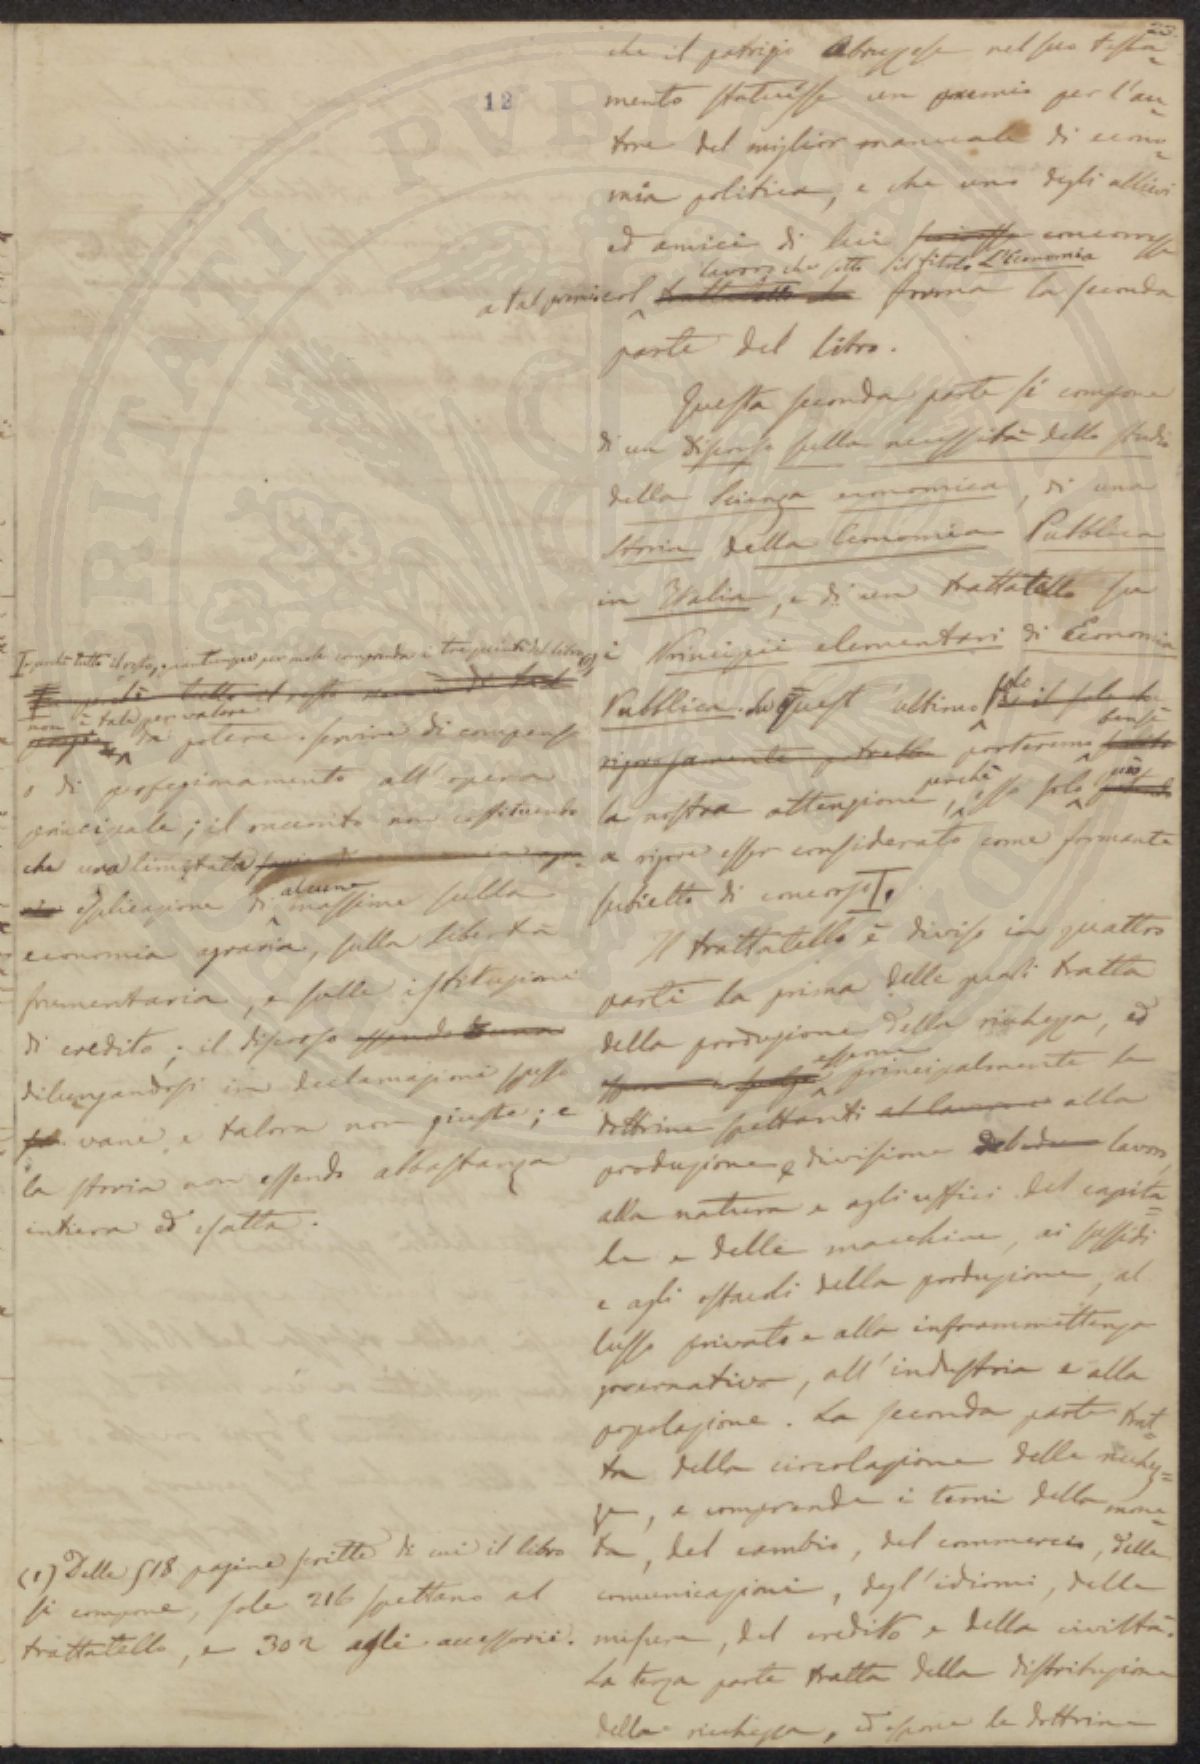 23.
12
che il patrizio Abruzzese nel suo testa=
mento statuisse un premio per l'au=
tore del miglior manuale di econo=
mia politica, e che uno degli allievi
ed amici di lui concorresse
lavoro che sotto il titolo L'Economia
a tal premio col trattatello che forma la seconda
parte del libro.
Questa seconda parte si compone
di un discorso sulla necessità dello studio
della Scienza economica, di una
Storia della Economia Pubblica
in Italia, e di un trattatello su
i Principii elementari di Economia
Pubblica. Su quest'ultimo solo
rigorosamente potrebbe porteremo bensì
la nostra attenzione, perchè esso solo può
a rigore esser considerato come formante
subietto di concorso I.
Il trattatello è diviso in quattro
parti la prima delle quali tratta
della produzione della ricchezza, ed
espone principalmente le
dottrine spettanti al lavoro alla
produzione e divisione del lavoro,
alla natura e agli uffici del capita=
le e delle macchine, ai sussidi
e agli ostacoli della produzione, al
lusso privato e alla inframmettenza
governativa, all'industria e alla
popolazione. La seconda parte trat=
ta della circolazione delle ricchez=
ze, e comprende i temi della mone=
ta, del cambio, del commercio, delle
comunicazioni, degl'idiomi, delle
misure, del credito e della civiltà.
La terza parte tratta della distribuzione
della ricchezza, ed espone le dottrine
I perchè tutto il resto, quantunque per mole comprenda i tre quinti del libro (1),
perchè tutto il resto
non è tale per valore
da potere servire di compenso
o di perfezionamento all'opera
principale; il racconto non costituendo
che una limitata
esplicazione di alcune massime sulla
economia agraria, sulla libertà
frumentaria, e sulle istituzioni
di credito; il discorso essendo
dilungandosi in declamazioni spesso
vane e talora non giuste; e
la storia non essendo abbastanza
intiera ed esatta.
(1) Delle 518 pagine scritte di cui il libro
si compone, sole 216 spettano al
trattatello, e 302 agli accessorii.